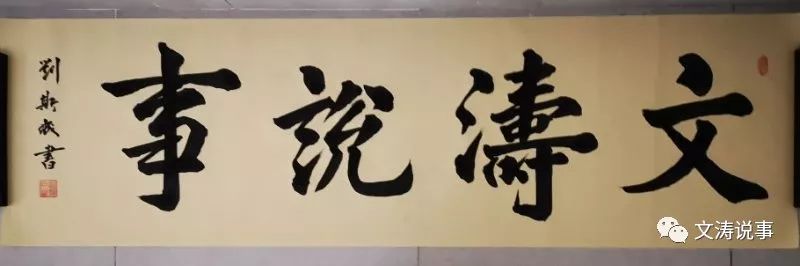 文濤說事
劉斯成書
文涛说事